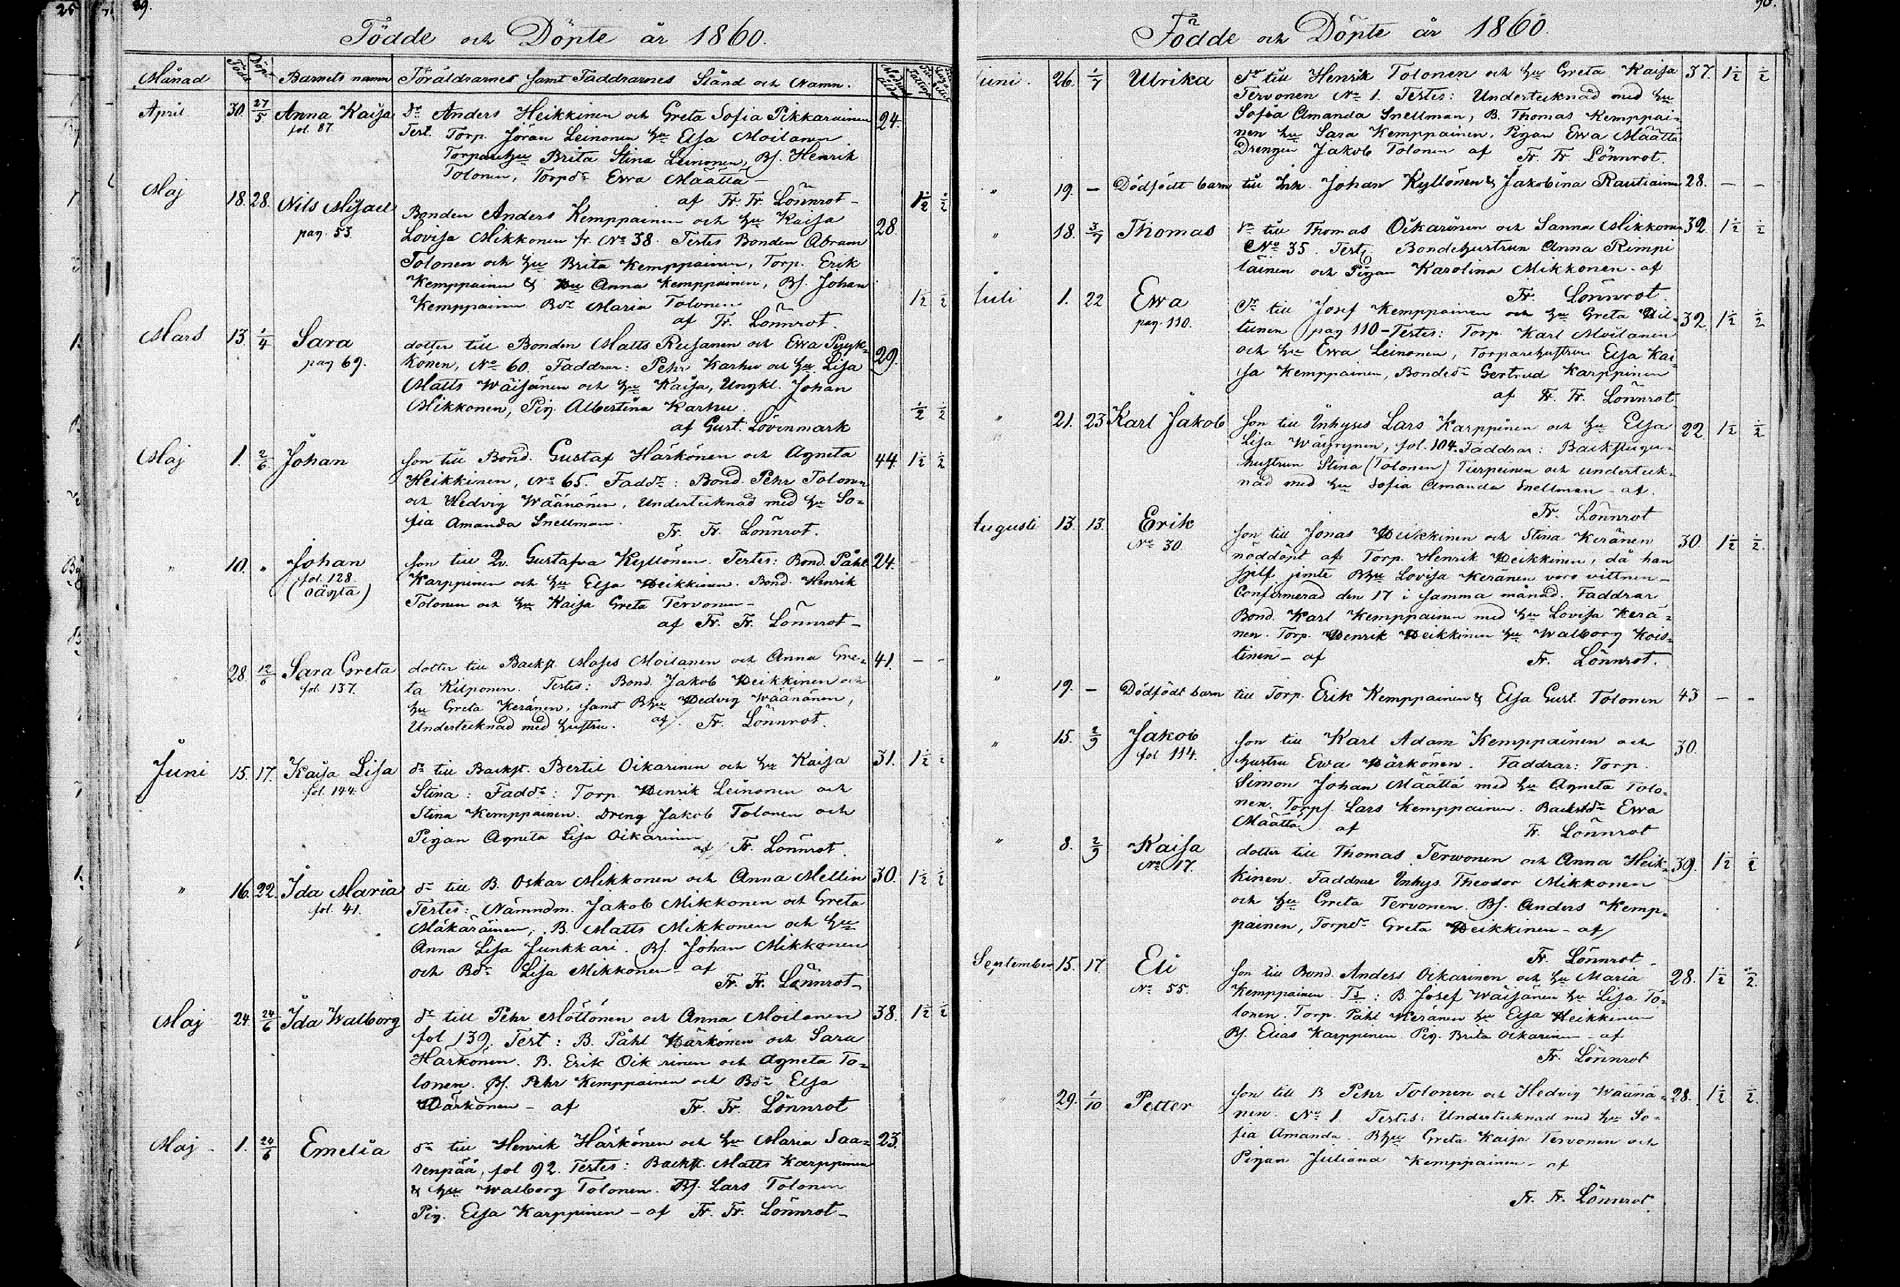 29.
Födde och Döpte år 1860.
Månad Född Döp. Barnets namn Föräldrarnes samt Faddrarnes Stånd och Namn.
April 30. 27/5 Anna Kaisa dr Anders Heikkinen och Greta Sofia Pikkarainen 24.
fol. 87 Test. Torp. Jöran Leinonen hu Elsa Moilanen
Torparehu Brita Stina Leinonen, Bs. Henrik
Tolonen, Torpdr Ewa Määttä
af Fr. Fr. Lönnrot
Maj 18. 28. Nils Misael Bonden Anders Kemppainen och hu Kaisa 28. 1½ ½
pag. 53 Lovisa Mikkonen fr. No 38. Testes Bonden Abram
Tolonen och hu Brita Kemppainen, Torp. Erik
Kemppainen & Hu Anna Kemppainen, Bs. Johan
Kemppainen Bdr Maria Tolonen 1½ ½
af Fr. Lönnrot.
Mars 13. 1/4 Sara dotter till Bonden Matts Reisanen och Ewa Pyyk- 29.
pag 69. könen, No 60. Faddrar: Pehr Karhu och hu Lisa
Matts Wäisänen och hu Kaisa, Ungkl. Johan
Mikkonen, Pig. Albertina Karhu ½ ½
af Gust. Lövenmark
Maj 1. 2/6 Johan son till Bond. Gustaf Härkönen och Agneta 44. 1½ ½
Heikkinen, No 65. Faddr: Bond. Pehr Tolonen
och Hedvig Wäänänen, Undertecknad med hu So-
fia Amanda Snellman.
Fr. Fr. Lönnrot.
" 10. " Johan son till Qv. Gustafva Kyllönen. Testes: Bond. Påhl 24.
fol. 128 Karppinen och hu Elsa Heikkinen. Bond. Henrik
(oägta) Tolonen och hu Kaisa Greta Tervonen
af Fr. Fr. Lönnrot
28. 12/6 Sara Greta dotter till Backst. Moses Moilanen och Anna Gre- 41. - -
fol. 137. ta Kilponen. Testes: Bond. Jakob Heikkinen och
hu Greta Keränen, samt Bhu Hedvig Wäänänen,
Undertecknad med hustru. af Fr. Lönnrot.
Juni 15. 17. Kaisa Lisa dr till Backst. Bertil Oikarinen och hu Kaisa 31. 1½ ½
fol. 144. Stina: Faddr: Torp. Henrik Leinonen och
Stina Kemppainen. Dreng Jakob Tolonen och
Pigan Agneta Lisa Oikarinen
af Fr. Lönnrot.
" 16. 22. Ida Maria dr till B. Oskar Mikkonen och Anna Mellin 30. 1½ ½
fol. 41. Testes: Nämndm. Jakob Mikkonen och Greta
Mäkäräinen, B. Matts Mikkonen och hu
Anna Lisa Junkkari. Bs. Johan Mikkonen
och Bdr Lisa Mikkonen af
Fr. Fr. Lönnrot
Maj 24. 24/6 Ida Walborg dr till Pehr Möttönen och Anna Moilanen 38. 1½ ½
fol 139. Test: B. Påhl Härkönen och Sara
Härkönen. B. Erik Oikarinen och Agneta To-
lonen. Bs. Pehr Kemppainen och Bdr Elsa
Härkönen - af Fr. Fr. Lönnrot
Maj 1. 24/6 Emelia dr till Henrik Härkönen och hu Maria Saa- 23.
renpää, fol 92. Testes: Backst. Matts Karppinen
& hu Walborg Tolonen. Bs. Lars Tolonen
Pig. Elsa Karppinen - af Fr. Fr. Lönnrot
Födde och Döpte år 1860.
Juni. 26. 1/7 Ulrika dr till Henrik Tolonen och hu Greta Kaisa 37. 1½ ½
Tervonen No 1. Testes: Undertecknad med hu
Sofia Amanda Snellman, B. Thomas Kemppai-
nen hu Sara Kemppainen, Pigan Ewa Määttä
Drengen Jakob Tolonen af Fr. Fr. Lönnrot.
" 19. - Dödfödt barn till Inh. Johan Kyllönen & Jakobina Rautiainen 28. - -
" 18. 3/7 Thomas till Thomas Oikarinen och Sanna Mikkonen 32. 1½ ½
No 35. Test: Bondehustrun Anna Kempi
läinen och Pigan Karolina Mikkonen - af
Fr. Lönnrot.
Juli 1. 22 Ewa dr till Josef Kemppainen och hu Greta Hil- 32. 1½ ½
pag. 110. tunen pag 110 - Testes: Torp. Karl Moilanen
och hu Ewa Leinonen, Torparehustrun Elsa Kai-
sa Kemppainen, Bondedr Gertrud Karppinen
af Fr. Fr. Lönnrot
" 21. 23 Karl Jakob son till Inhyses Lars Karppinen och hu Elsa 22. 1½ ½
Lisa fol. 104. Faddrar: Backstugu-
hustrun Stina (Tolonen) Turpeinen och underteck-
nad med hu Sofia Amanda Snellman - af.
Fr. Lönnrot
Augusti 13. 13. Erik son till Jonas Heikkinen och Stina Keränen 30. 1½ ½
No 30 nöddöpt af Torp. Henrik Heikkinen, då han
sjelf jemte Bhu Lovisa Keränen voro vittnen -
Confirmerad den 17 i samma månad. Faddrar
Bond. Karl Kemppainen med hu Lovisa Kerä-
nen. Torp. Henrik Heikkinen hu Walborg Kois-
tinen - af Fr. Lönnrot.
" 19. - Dödfödt barn till Torp. Erik Kemppainen & Elsa Gust. Tolonen 43 - -
" 15. 2/9 Jakob son till Karl Adam Kemppainen och 30.
fol 114. hustru Ewa Härkönen. Faddrar: Torp.
Simon Johan Määttä med hu Agneta Tolo-
nen. Torps. Lars Kemppainen. Backstdr Ewa
Määttä af Fr. Lönnrot
" 8. 2/9 Kaisa dotter till Thomas Terwonen och Anna Heik- 39. 1½ ½
No 17. kinen. Faddrar Inhys. Theodor Mikkonen
och hu Greta Tervonen. Bs. Anders Kemp-
painen, Torpdr Greta Heikkinen - af
Fr. Lönnrot
September 15. 17 Eli son till Bond. Anders Oikarinen och hu Maria 28. 1½ ½.
No 55. Kemppainen. Ts: B Josef Wäisänen hu Lisa To-
lonen. Torp. Påhl Keränen hu Elsa Heikkinen
Bs. Elias Karppinen Pig. Brita Oikarinen - af
Fr. Lönnrot
29. 1/10 Petter son till B Pehr Tolonen och Hedvig Wäänä- 28. 1½ ½.
nen. No 1 Testes: Undertecknad med hu So-
fia Amanda. Bhu Greta Kaisa Tervonen och
Pigan Juliana Kemppainen - af
Fr. Fr. Lönnrot.